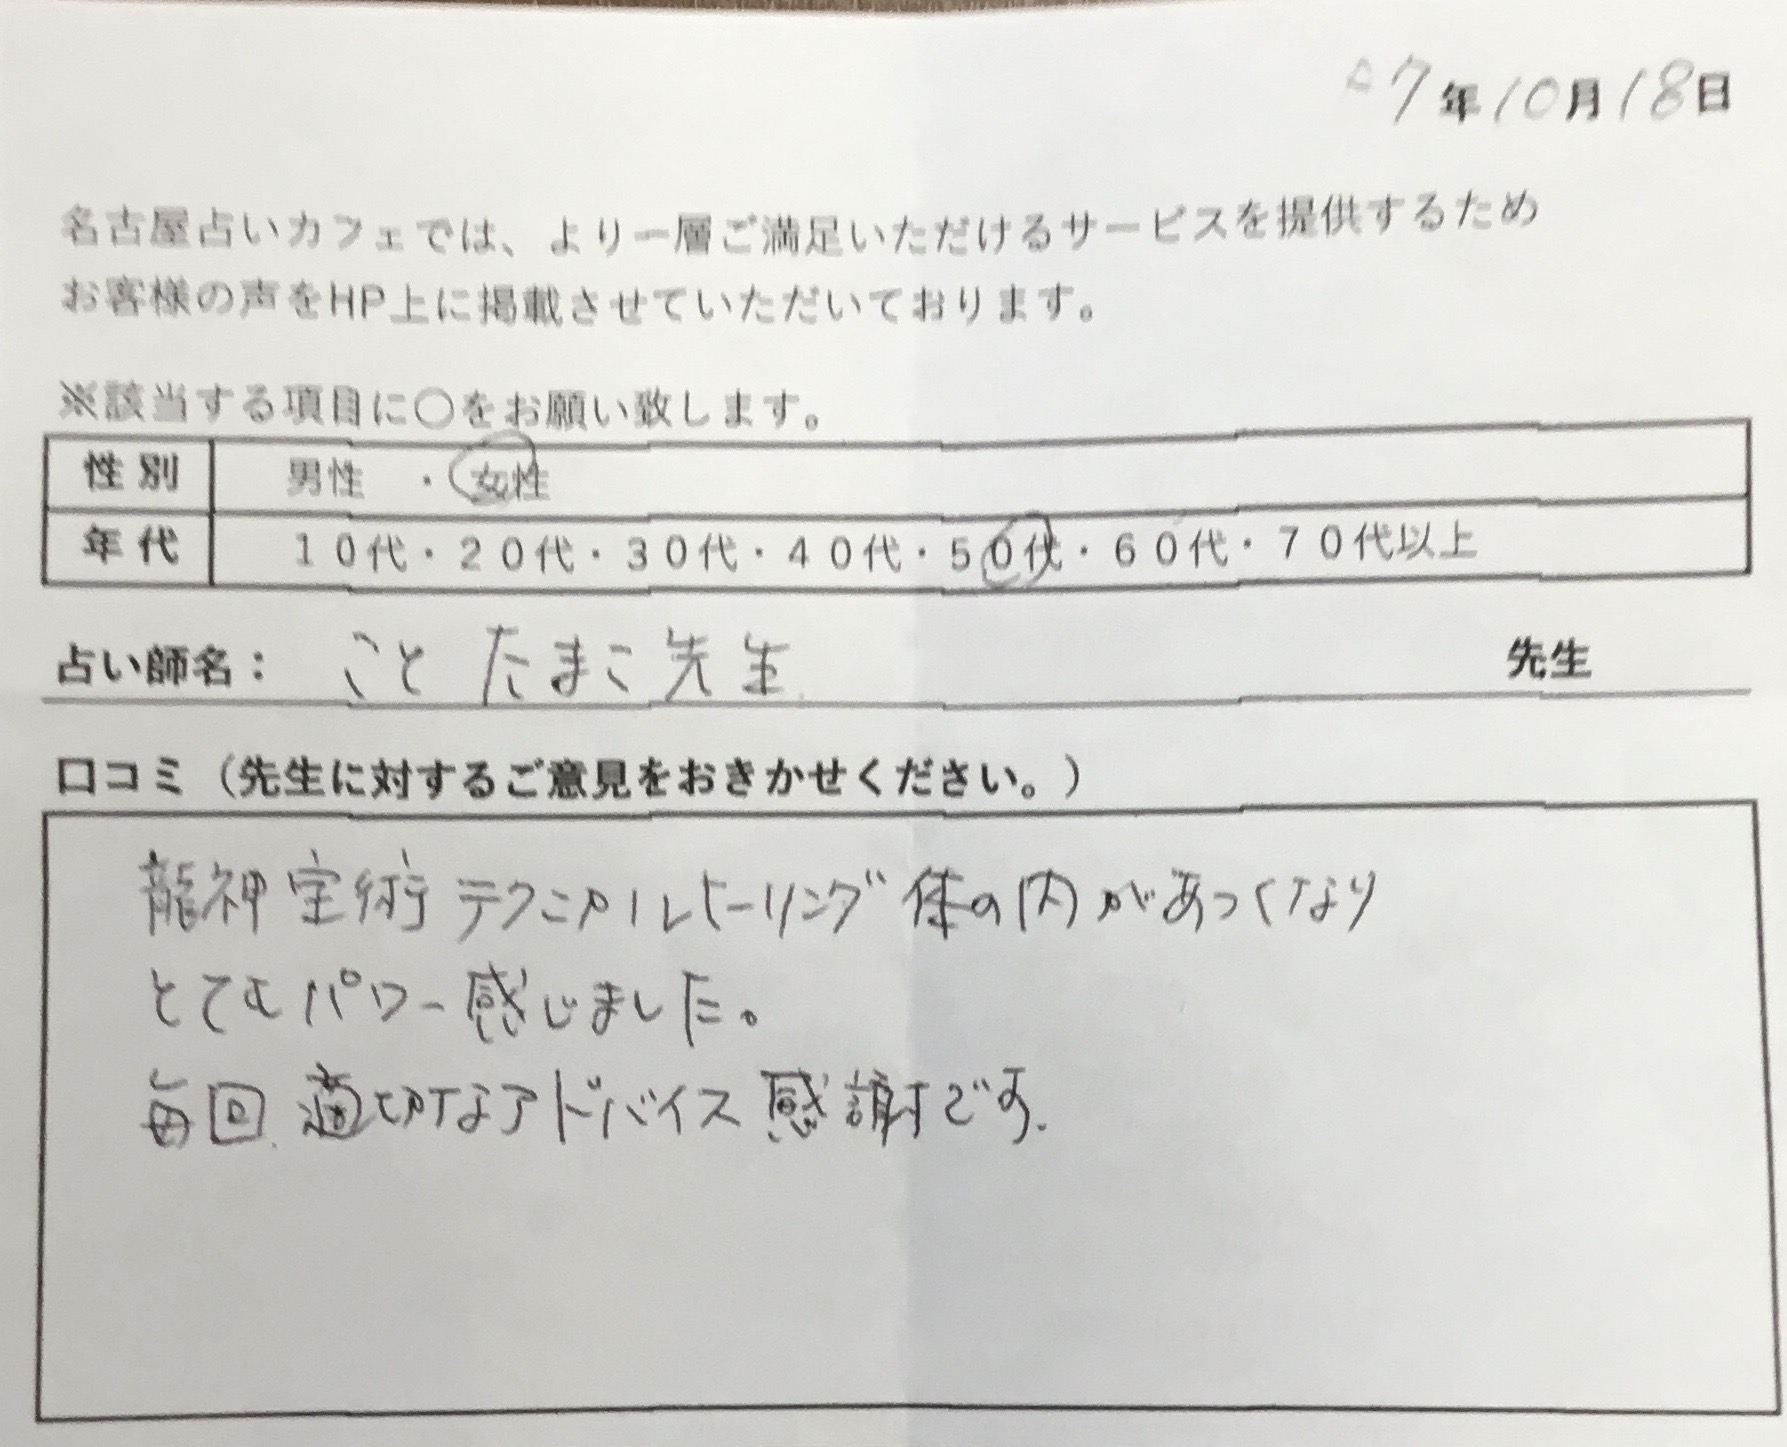 7年10月18日
名古屋占いカフェでは、より一層ご満足いただけるサービスを提供するため
お客様の声をHP上に掲載させていただいております。
※該当する項目に○をお願い致します。
性別 男性 ・ 女性
年代 10代・20代・30代・40代・50代・60代・70代以上
占い師名: こと たまこ先生 先生
口コミ(先生に対するご意見をおきかせください。)
龍神宝術テクニカルヒーリング体の内があつくなり
とてもパワー感じました。
毎回 適切なアドバイス感謝です.